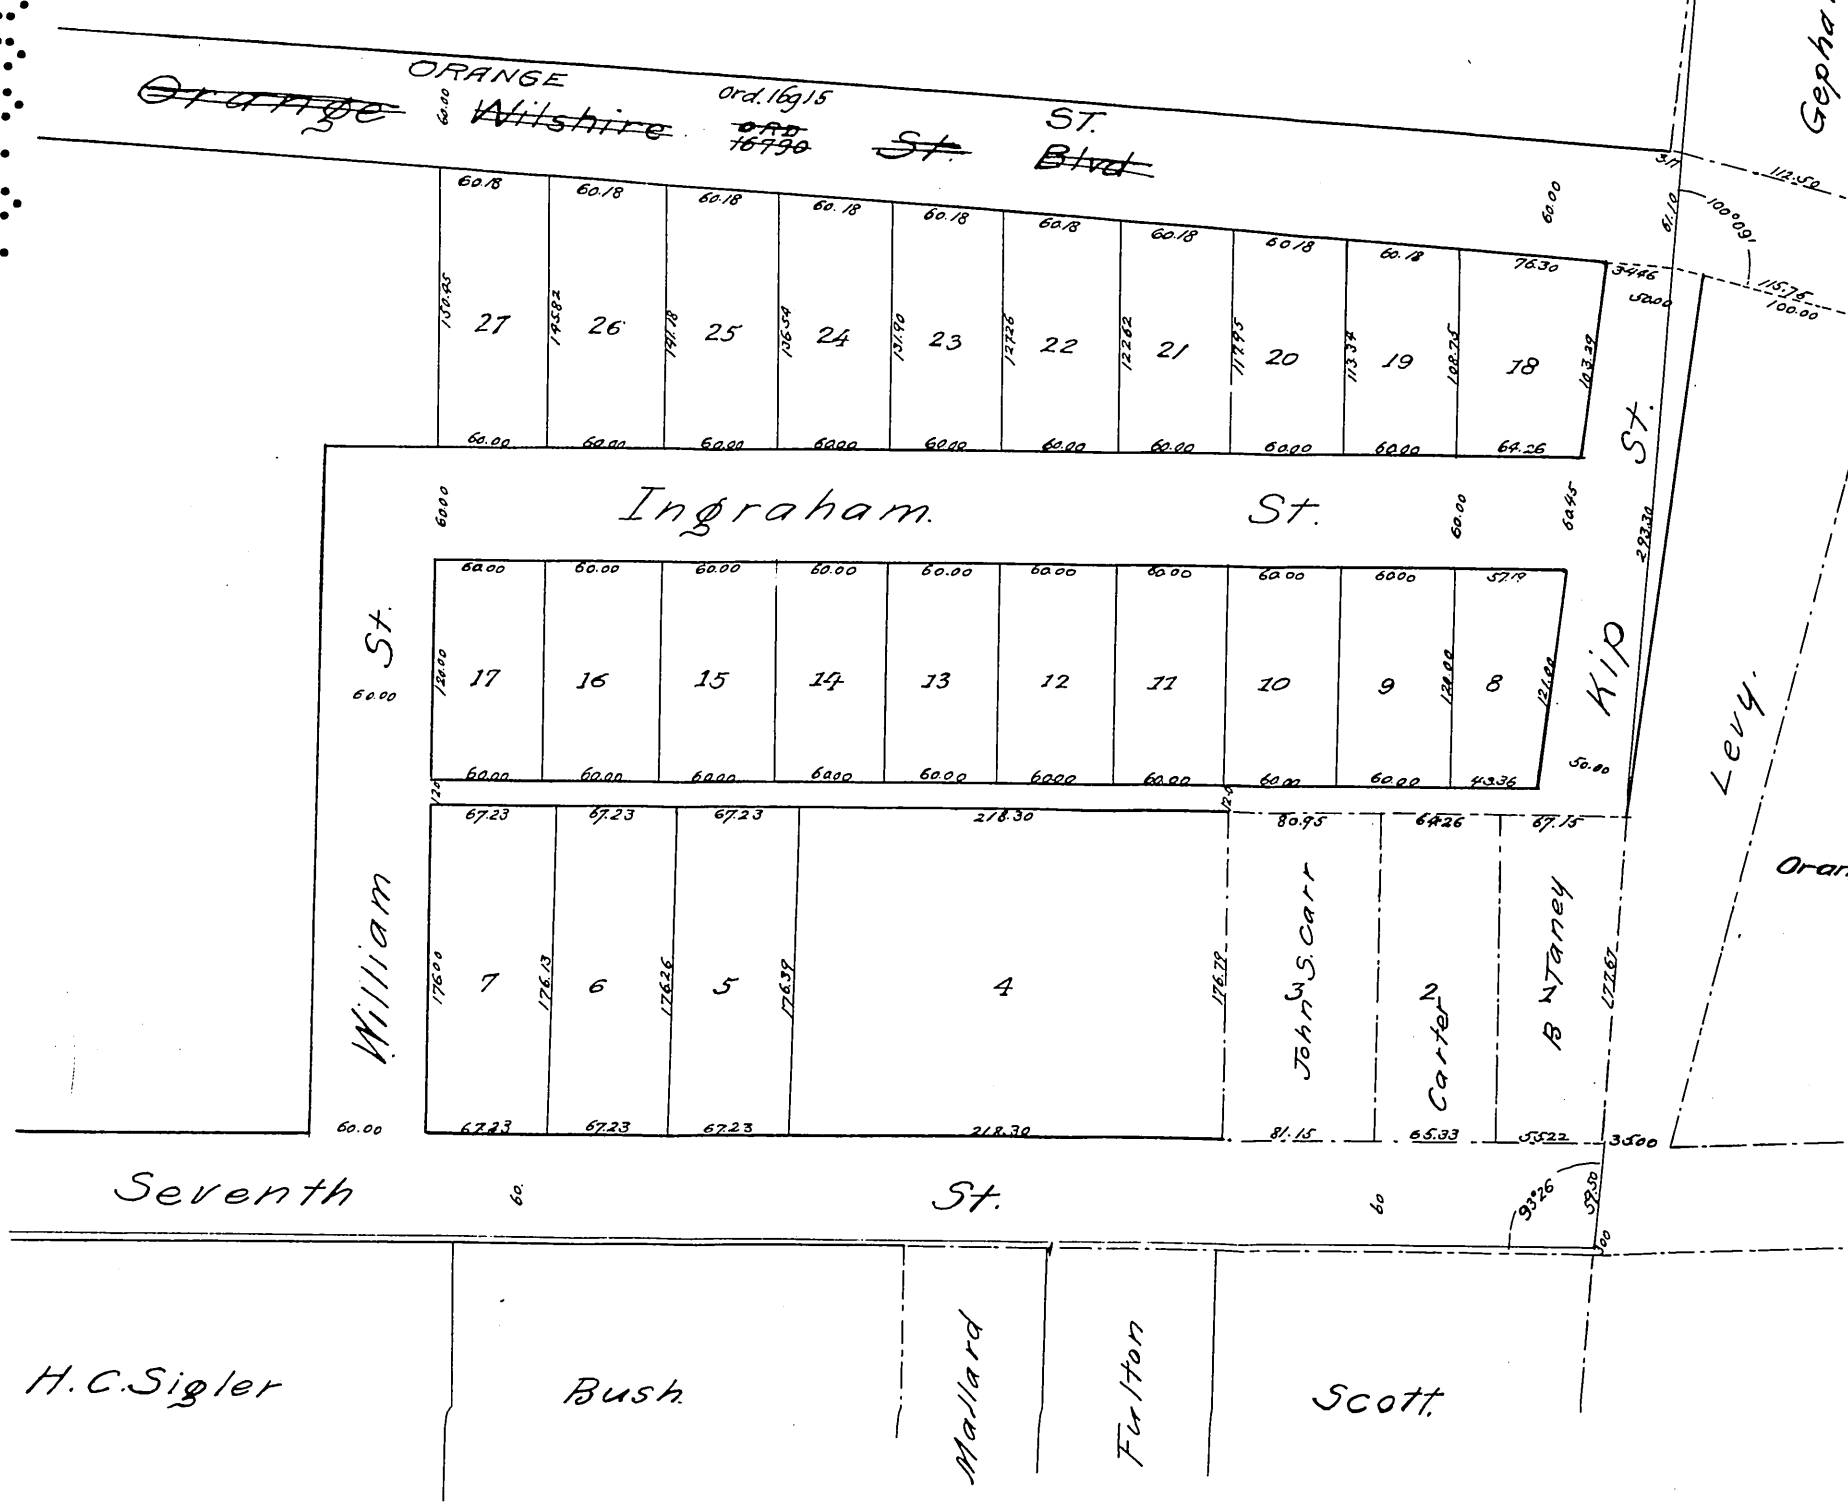 Gepha
ORANGE
Orange
60.00
Wilshire
Ord. 16915
ORD
16790
St.
ST.
Blvd
3.17
112.50
60.18
60.18
60.18
60.18
60.18
60.18
60.18
60.18
60.18
76.30
60.00
61.10
100°09'
34.46
50.00
115.75
100.00
150.45
27
145.82
26
141.18
25
136.54
24
131.90
23
127.26
22
122.62
21
117.95
20
113.34
19
108.75
18
103.29
60.00
60.00
60.00
60.00
60.00
60.00
60.00
60.00
60.00
64.26
60.00
Ingraham.
St.
60.00
60.45
293.30
Kip
St.
60.00
60.00
60.00
60.00
60.00
60.00
60.00
60.00
60.00
57.19
William
St.
60.00
120.00
17
16
15
14
13
12
11
10
9
120.00
8
121.00
60.00
60.00
60.00
60.00
60.00
60.00
60.00
60.00
60.00
43.36
50.00
Levy.
67.23
67.23
67.23
218.30
80.95
64.26
67.15
Oran
176.00
7
176.13
6
176.26
5
176.39
4
176.79
John S. Carr
3
2
Carter
B Taney
177.67
60.00
67.23
67.23
67.23
218.30
81.15
65.33
55.22
35.00
Seventh
60.
St.
60
93°26
59.50
H.C. Sigler
Bush.
Mallard
Fulton
Scott.